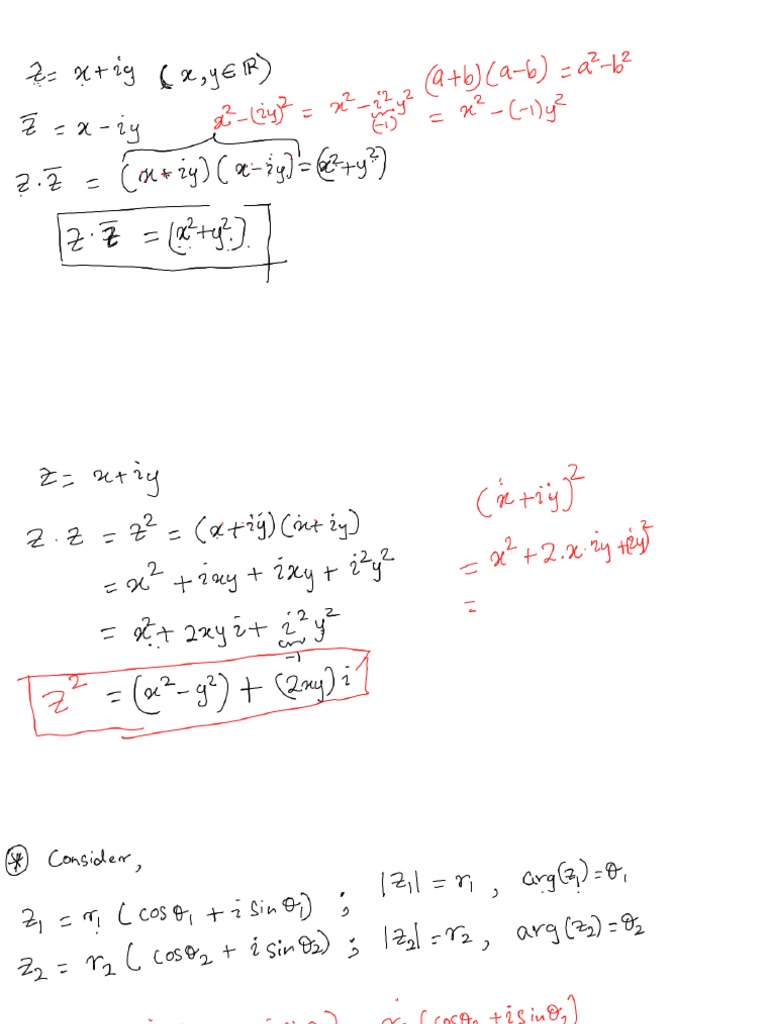 z = x + iy (x, y ∈ ℝ)
(a+b)(a-b) = a² - b²
z̄ = x - iy
x² - (iy)² = x² - i²y² = x² - (-1)y²
(-1)
z · z̄ = (x + iy)(x - iy) = (x² + y²)
z · z̄ = (x² + y²)
z = x + iy
z · z = z² = (x + iy)(x + iy)
= x² + ixy + ixy + i²y²
= x² + 2xy i + i²y²
-1
z² = (x² - y²) + (2xy) i
(x + iy)²
= x² + 2.x.iy + (iy)²
=
* Consider,
z₁ = r₁ (cosθ₁ + i sinθ₁) ; |z₁| = r₁ , arg(z₁) = θ₁
z₂ = r₂ (cosθ₂ + i sinθ₂) ; |z₂| = r₂ , arg(z₂) = θ₂
(cosθ₂ + i sinθ₂)